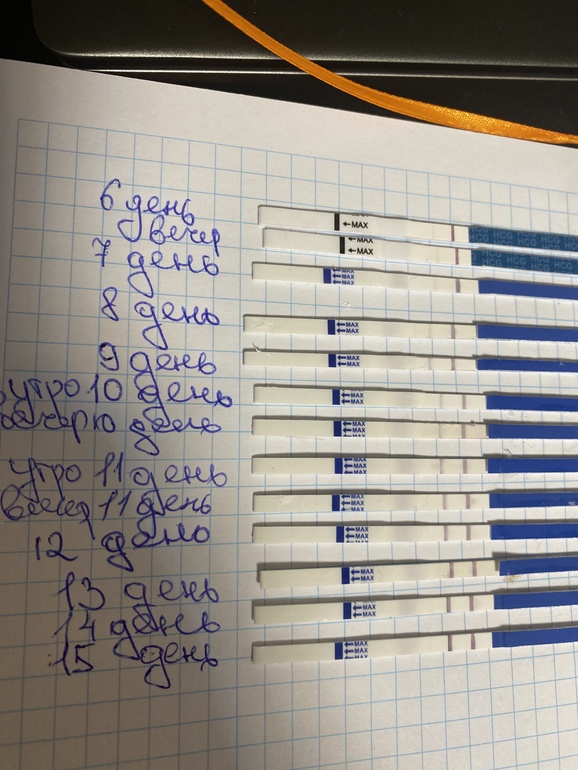 6 день
MAX
вечер
MAX
HCG HCG HCG
7 день
MAX
MAX
8 день
MAX
MAX
9 день
MAX
MAX
утро 10 день
MAX
MAX
вечер 10 день
MAX
MAX
утро 11 день
MAX
MAX
вечер 11 день
MAX
MAX
12 день
MAX
MAX
13 день
MAX
MAX
14 день
MAX
15 день
MAX
MAX